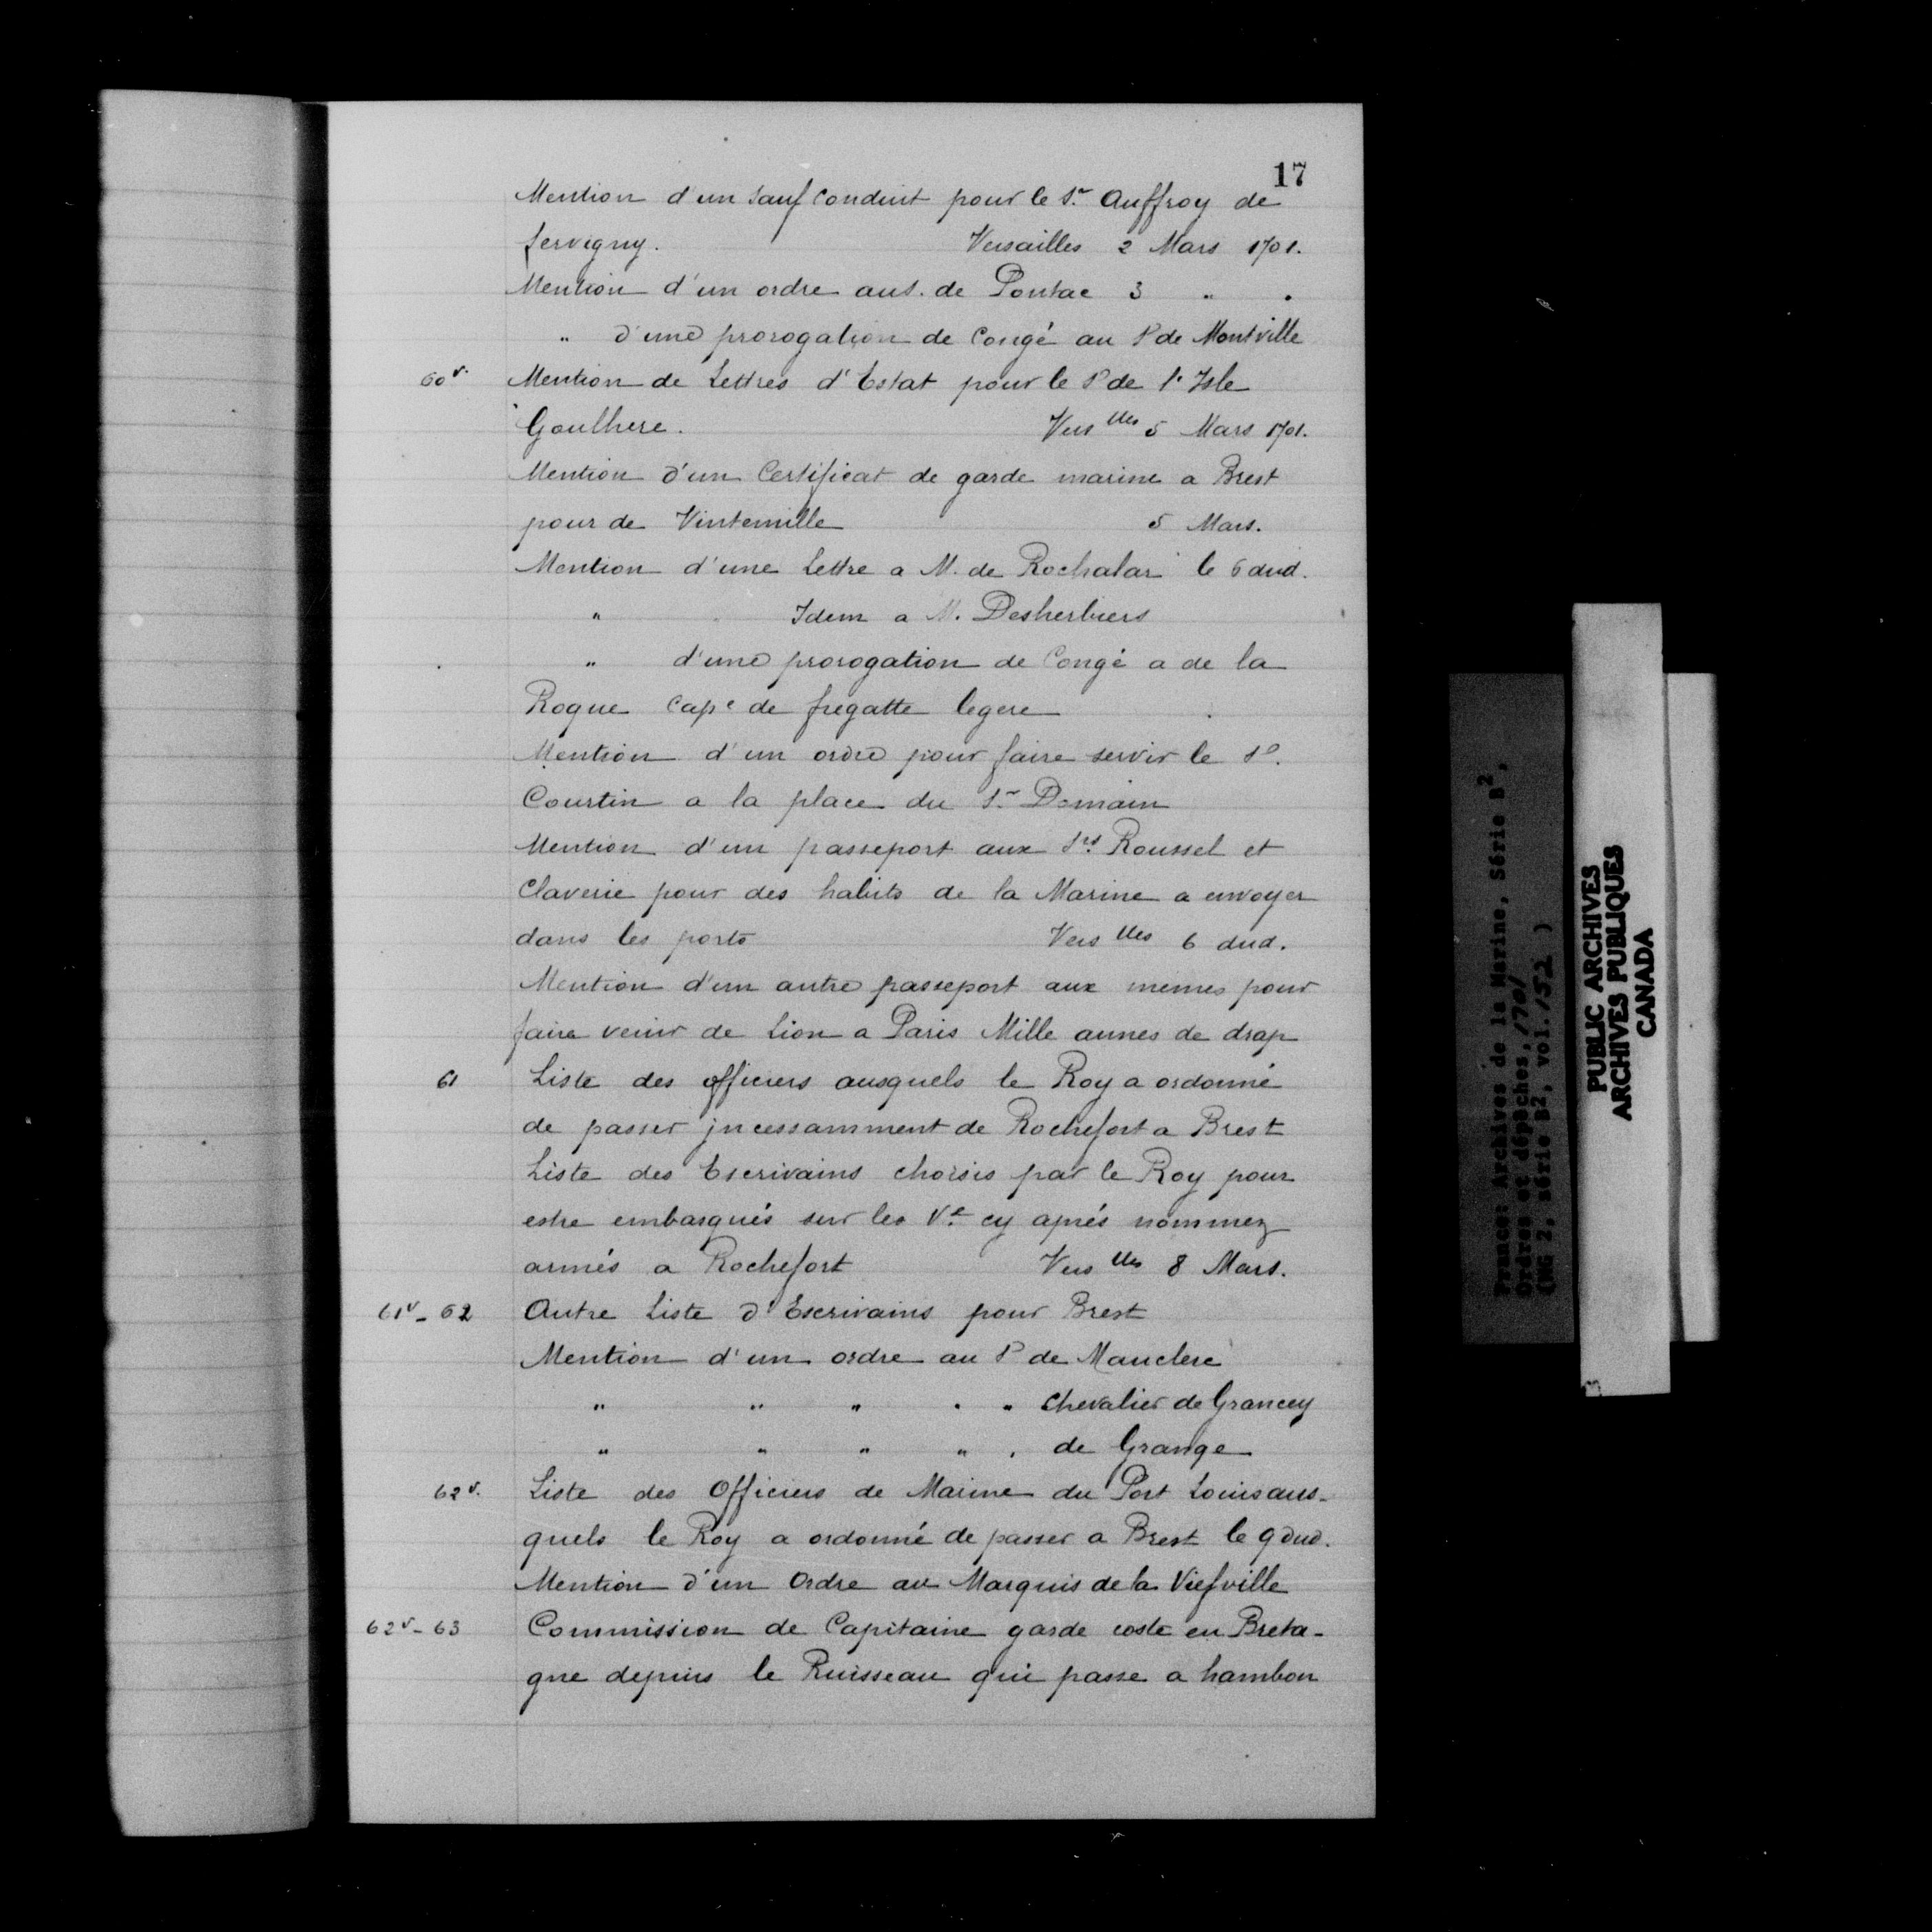 17
Mention d'un sauf conduit pour le Sr. Auffroy de
Servigny. Versailles 2 Mars 1701.
Mention d'un ordre au S. de Pontac 3 " "
" d'une prorogation de Congé au Sr de Montville
60 v. Mention de Lettres d'Estat pour le Sr de l'Isle
Goulhere. Vers lles 5 Mars 1701.
Mention d'un Certificat de garde marine a Brest
pour de Vintemille 5 Mars.
Mention d'une Lettre a M. de Rochalar le 6 dud.
" Idem a M. Desherbiers
" d'une prorogation de Congé a de la
Roque Cape de fregatte legere
Mention d'un ordre pour faire servir le Sr.
Courtin a la place du Sr. Domain
Mention d'un passeport aux Srs Roussel et
Claverie pour des habits de la Marine a envoyer
dans les ports Vers lles 6 dud.
Mention d'un autre passeport aux memes pour
faire venir de Lion a Paris Mille aunes de drap
61 Liste des officiers ausquels le Roy a ordonné
de passer jncessamment de Rochefort a Brest
Liste des Escrivains choisis par le Roy pour
estre embarqués sur les Vx cy aprés nommez
armés a Rochefort Vers lles 8 Mars.
61v - 62 Autre Liste d'Escrivains pour Brest
Mention d'un ordre au Sr de Mauclerc
" " " " " Chevalier de Grancey
" " " " " de Grange
62 v. Liste des Officiers de Marine du Port Louis aus-
quels le Roy a ordonné de passer a Brest le 9 dud.
Mention d'un Ordre au Marquis de la Viefville
62v - 63 Commission de Capitaine garde coste en Breta-
gne depuis le Ruisseau qui passe a hambon
France: Archives de la Marine, Série B2,
Ordres et dépêches, 1701
(MG 2, série B2, vol. 152 )
PUBLIC ARCHIVES
ARCHIVES PUBLIQUES
CANADA